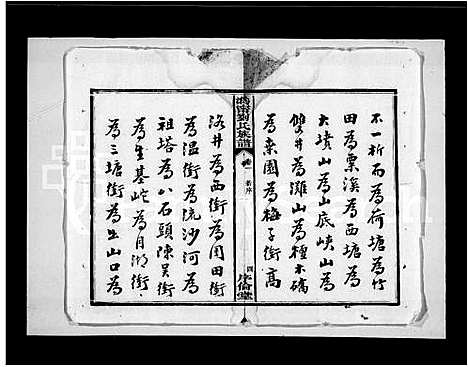 不一析而為荷塘為竹
田為栗溪為西塘為
大墳山為山底峽山為
雙井為灘山為種木
為棗園為梅子衝高
溈甯劉氏族譜
卷一
舊序
四
序倫堂
洛井為西衝為園田衝
為溫衝為流沙河為
祖塔為八石頭陳吳衝
為生基為月湖衝
為三塘衝為出山口為